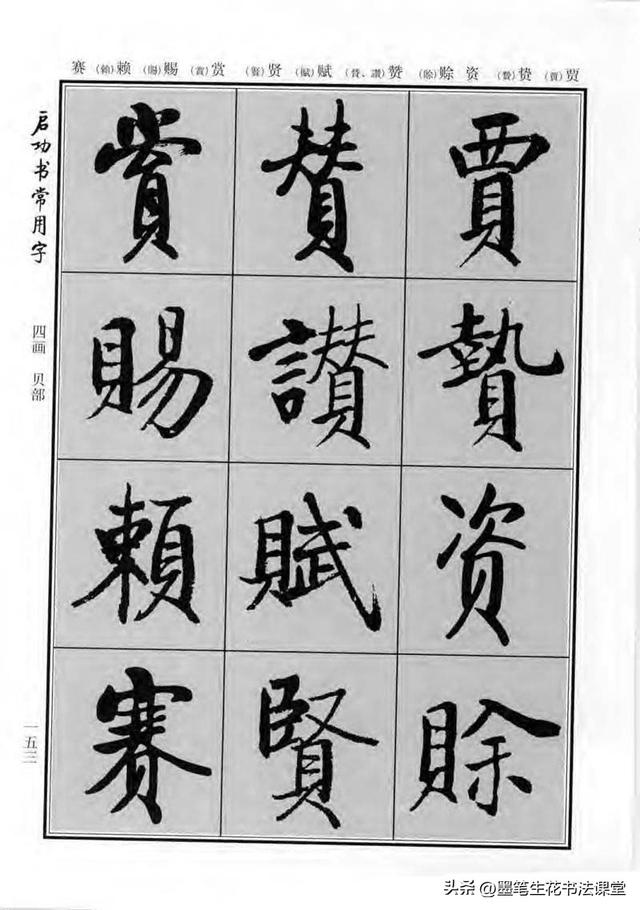 贾(賈)贽(贄)资 赊(賒)赞(贊、讚)赋(賦)贤(賢)赏(賞)赐(賜)赖(賴)赛
賈贄资賒
贊讚賦賢
賞賜賴赛
启功书常用字
四画 贝部
一五三
头条 @墨笔生花书法课堂